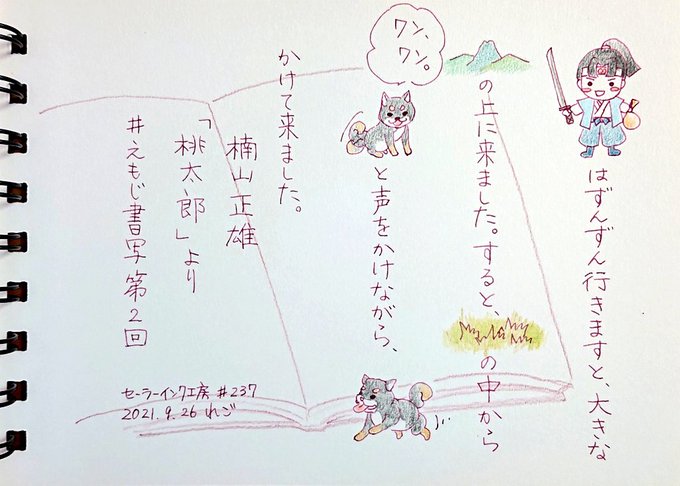 はずんずん行きますと、大きな
の上に来ました。すると、
の中から
ワン、
ワン。
と声をかけながら、
かけて来ました。
楠山正雄
「桃太郎」より
#えもじ書写第2回
セーラーインク工房 #237
2021.9.26 れご